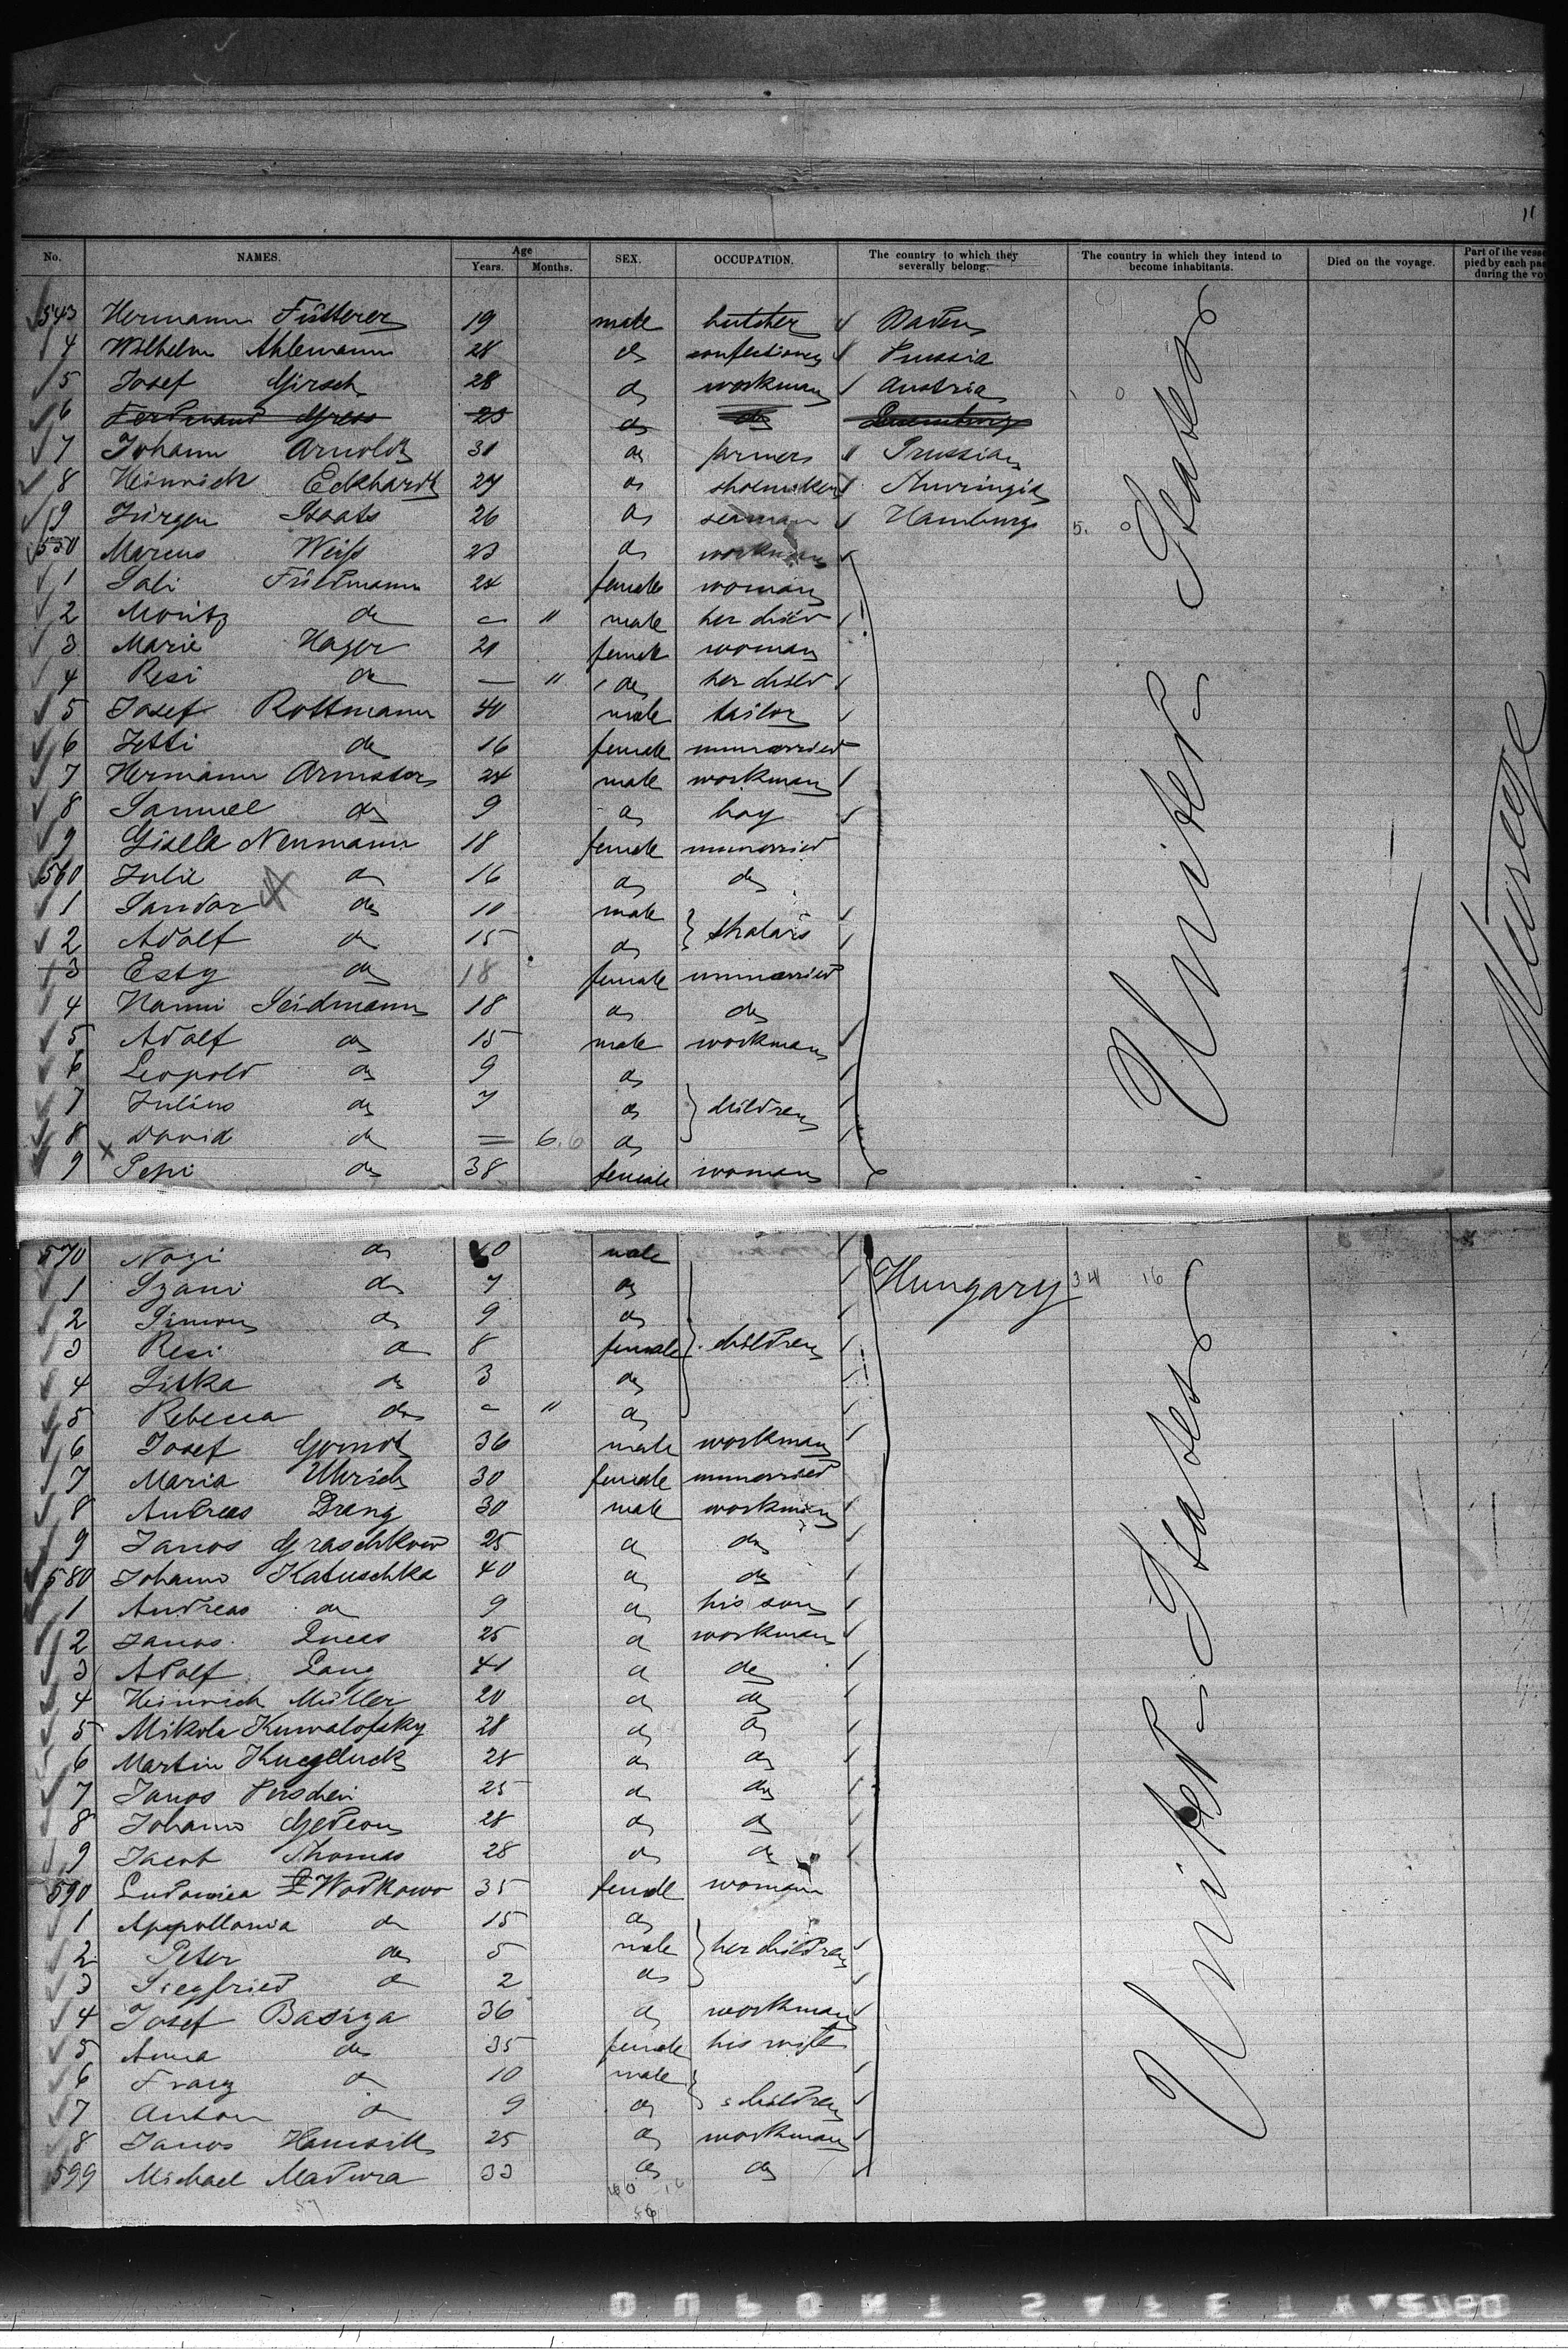 11
No. NAMES. Age Years. Months. SEX. OCCUPATION. The country to which they severally belong. The country in which they intend to become inhabitants. Died on the voyage. Part of the vesse pied by each pas during the voy
543 Hermann Fütterer 19 male butcher Baden
4 Wilhelm Ahlemann 28 do confectioner Prussia
5 Josef Girsch 28 do workman Austria
6 Ferdinand Gress 23 do do Luxemburg
7 Johann Arnoldt 31 do farmer Prussia
8 Heinrich Eckhardt 29 do shoemaker Thuringia
9 Jürgen Staats 26 do seaman Hamburg
550 Marcus Weiss 23 do workman
1 Sali Friedmann 24 female woman
2 Moritz do " male her child
3 Marie Hager 21 female woman
4 Resi do — " do her child
5 Josef Rottmann 40 male tailor
6 Jetti do 16 female unmarried
7 Hermann 24 male workman
8 Samuel do 9 do boy
9 Gisela Neumann 18 female unmarried
560 Julie do 16 do do
1 Sandor do 10 male
2 Adolf do 15 do
3 Esty do 18 female unmarried
4 Hanni Seidmann 18 do do
5 Adolf do 15 male workman
6 Leopold do 9 do
7 Julius do 7 do children
8 David do — 6. do
9 Pepi do 38 female woman
570 Nazi do 10 male
1 Szani do 7 do Hungary
2 Simon do 9 do
3 Resi do 8 female children
4 Lilka do 3 do
5 Rebecca do " do
6 Josef Gorndt 36 male workman
7 Maria Uhrich 30 female unmarried
8 Andreas Dreng 30 male workman
9 Janos Graschkow 25 do do
580 Johann Katuschka 40 do do
1 Andreas do 9 do his son
2 Janos Lucas 25 do workman
3 Adolf Lang 41 do do
4 Heinrich Müller 20 do do
5 Mikola Kuwalofsky 28 do do
6 Martin 28 do do
7 Janos 25 do do
8 Johann Gedeon 28 do do
9 Jacob Thomas 28 do do
590 Ludowica Wodkowo 35 female woman
1 Appollonia do 15 do
2 Peter do 5 male her children
3 Siegfried do 2 do
4 Josef Basiza 36 do workman
5 Anna do 35 female his wife
6 Franz do 10 male
7 Anton do 9 do children
8 Janos 25 do workman
599 Michael Madura 33 do do
United States
United States
DUPONT SAFETY